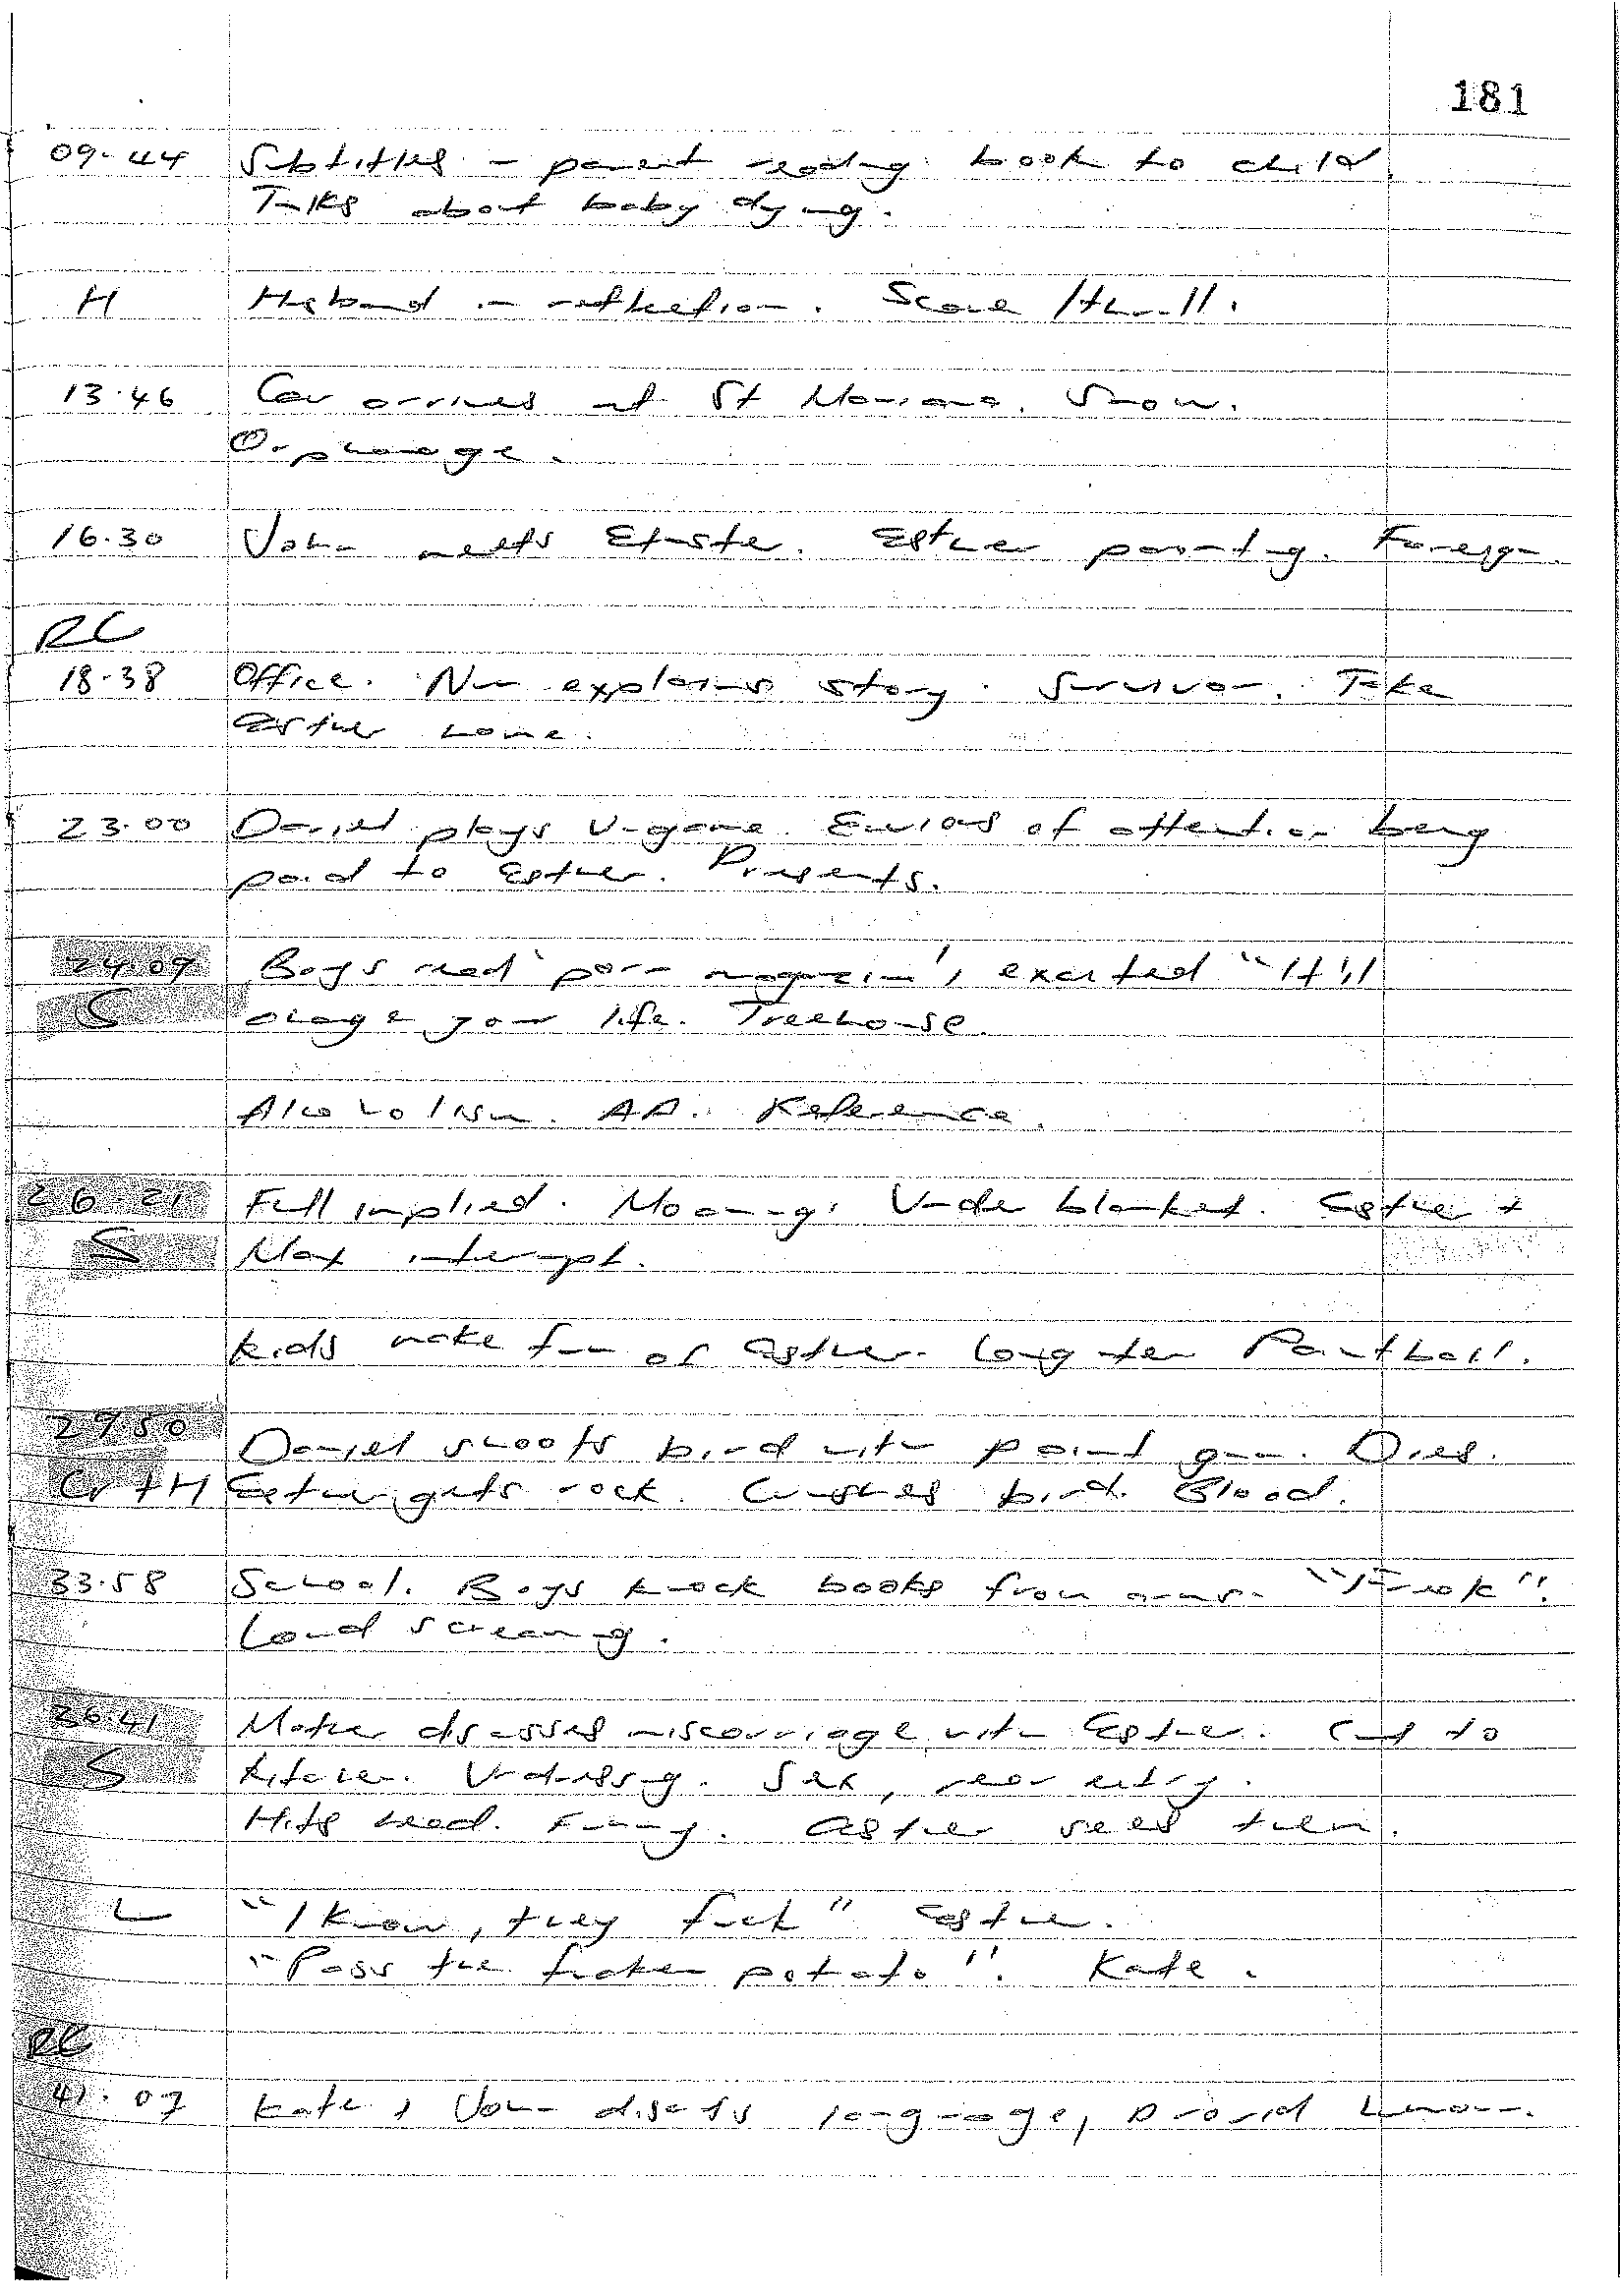 181
09-44 Subtitles - parent reading book to child
Talks about baby dying.
H Husband in reflection. Scare / thrill.
13.46 Car arrives at St Marianas. Snow.
Orphanage.
16.30 John meets Ethster. Esther painting. Foreign.
RC
18-38 Office. Nun explains story. Survivor. Take
Esther home.
23.00 Daniel plays V-game. Envious of attention being
paid to Esther. Presents.
24.09 Boys read 'porn magazine', excited "It'll
S change your life. Treehouse.
Alcoholism. AA. Reference.
26-21 Full implied. Moaning. Under blanket. Esther +
S Max interrupt.
Kids make fun of Esther. Laughter Paintball.
29.50 Daniel shoots bird with paint gun. Dies.
Cr + H Esther gets rock. Crushes bird. Blood.
33.58 School. Boys knock books from arms. "Freak".
Loud screaming.
36.41 Mother discusses miscarriage with Esther. Cut to
S Kitchen. Undressing. Sex, rear entry.
Hits head. Funny. Esther sees them.
L "I know, they fuck" Esther.
"Pass the fucken potato". Kate.
RC
41.07 Kate + John discuss language,